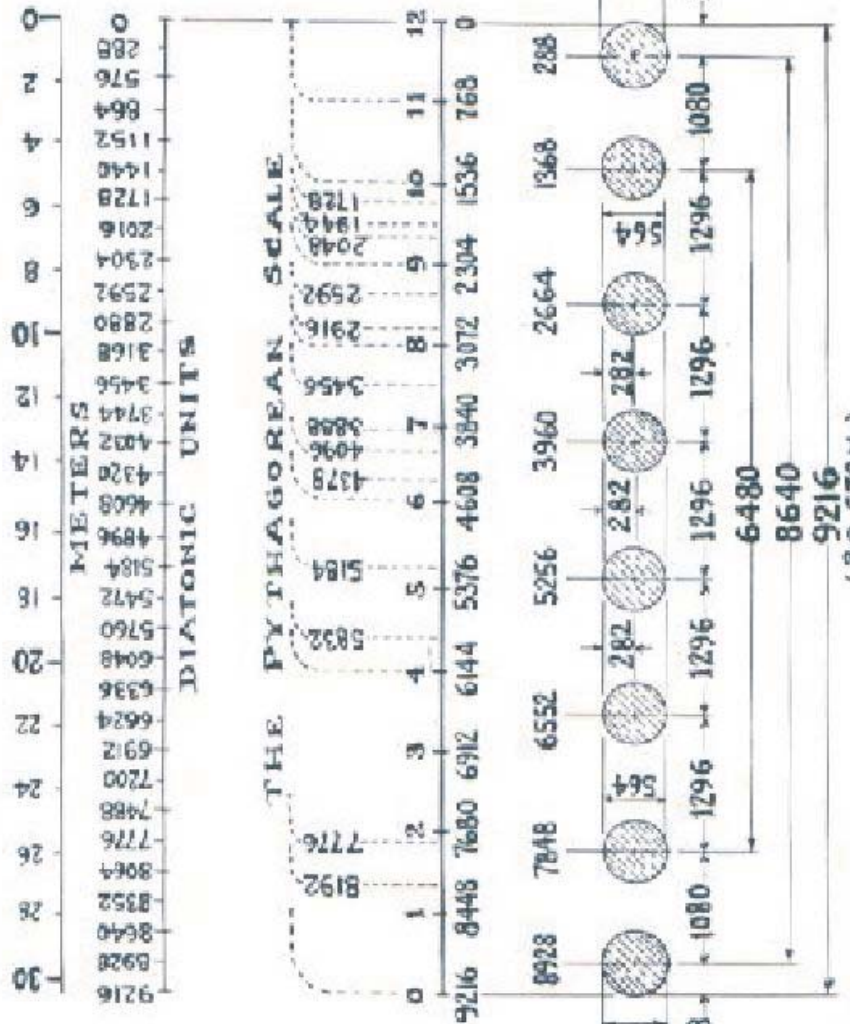 0
2
4
6
8
10
12
14
16
18
20
22
24
26
28
30
METERS
0
288
576
864
1152
1440
1728
2016
2304
2592
2880
3168
3456
3744
4032
4320
4608
4896
5184
5472
5760
6048
6336
6624
6912
7200
7488
7776
8064
8352
8640
8928
9216
DIATONIC UNITS
THE PYTHAGOREAN SCALE
1728
1944
2048
2592
2916
3456
3888
4096
4378
5184
5832
7776
8192
12
11
10
9
8
7
6
5
4
3
2
1
0
0
768
1536
2304
3072
3840
4608
5376
6144
6912
7680
8448
9216
288
1368
2664
3960
5256
6552
7848
8928
564
282
282
282
564
1080
1296
1296
1296
1296
1296
1080
6480
8640
9216